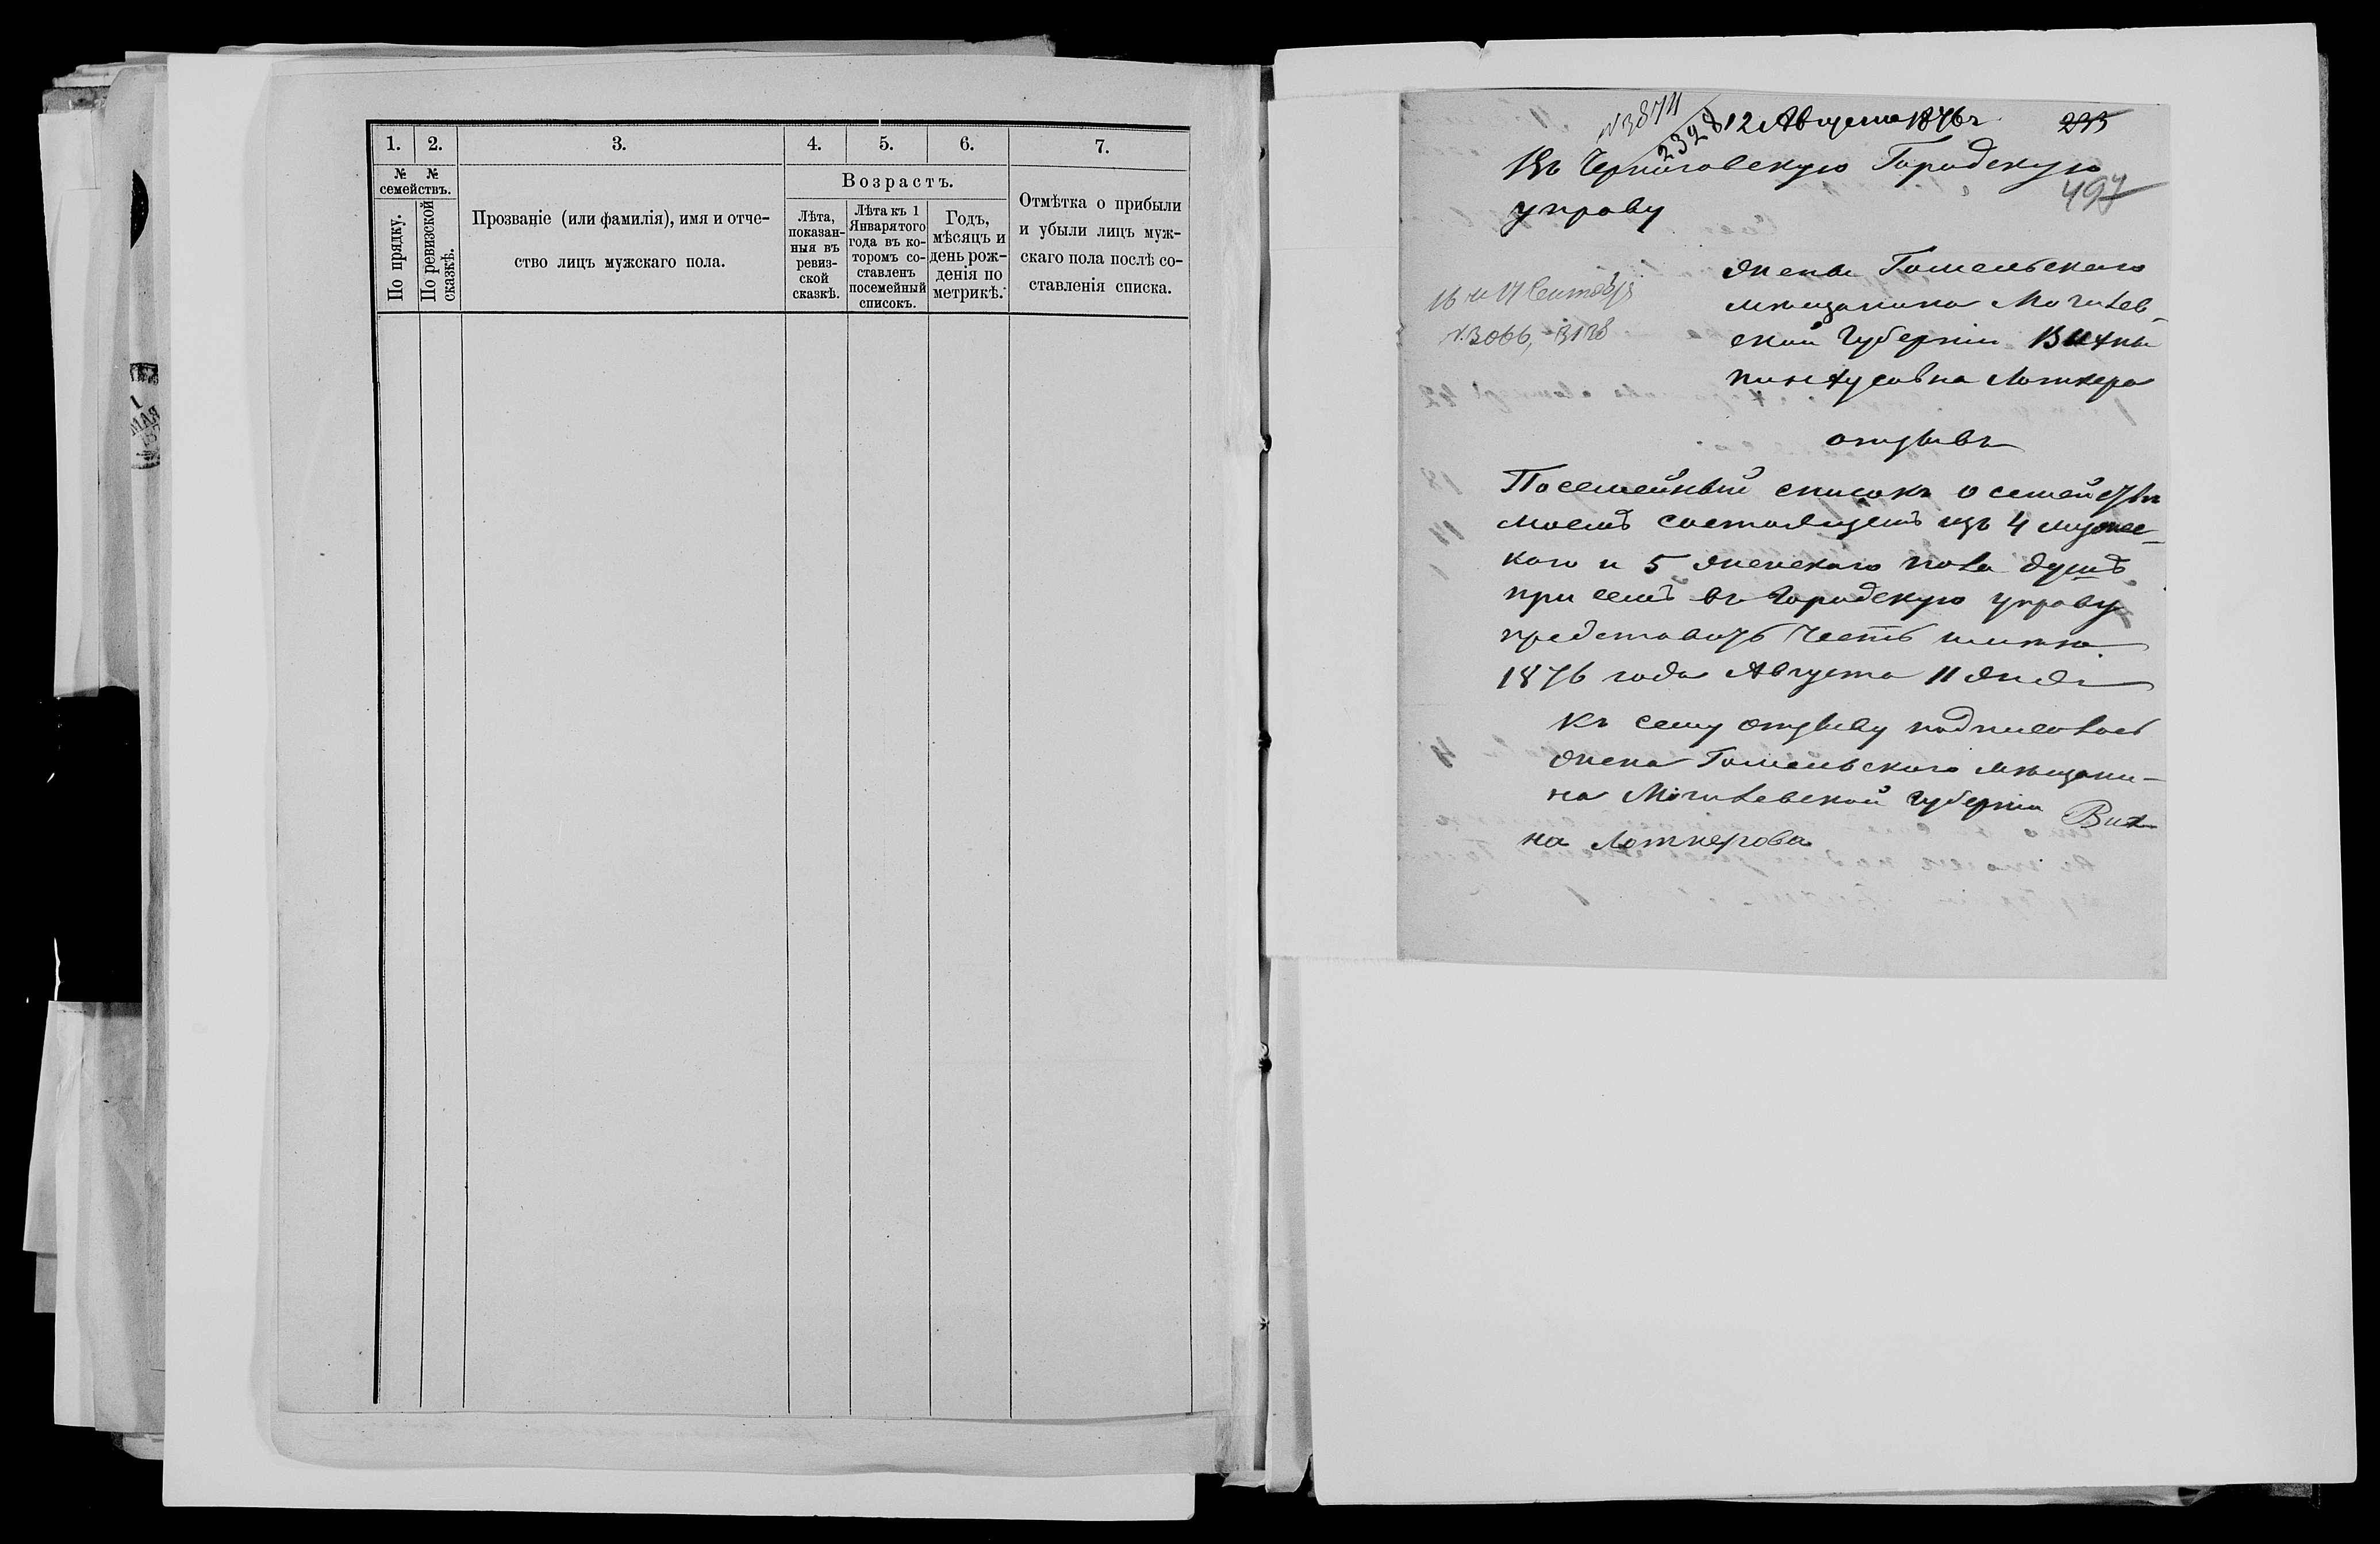 1. 2. 3. 4. 5. 6. 7.
№ № семействъ.
По прядку.
По ревизской сказкѣ.
Прозваніе (или фамилія), имя и отче-
ство лицъ мужскаго пола.
Возрастъ.
Лѣта,
показан-
ныя въ
ревиз-
ской
сказкѣ.
Лѣта къ 1
Января того
года въ ко-
торомъ со-
ставленъ
посемейный
списокъ.
Годъ,
мѣсяцъ и
день рож-
денія по
метрикѣ.
Отмѣтка о прибыли
и убыли лицъ муж-
скаго пола послѣ со-
ставленія списка.
1
МАЯ
2328 12 Августа 1876 г.
233
497
Въ Черниговскую Городскую
управу
16 и 17 Сентября
N. 3066, 3138
Жены Гомельскаго
мѣщанина Могилев-
ской Губерніи Вихны
Пинхусовна Лоткера
отзывъ
Посемейный списокъ о семействѣ
моемъ состоящемъ изъ 4 мужес-
каго и 5 женскаго пола душъ
при семъ въ Городскую управу
представить честь имѣю.
1876 года Августа 11 дня
Къ сему отзыву подписалась
жена Гомельскаго мѣщани-
на Могилевской губерніи Вих-
на Лоткерова